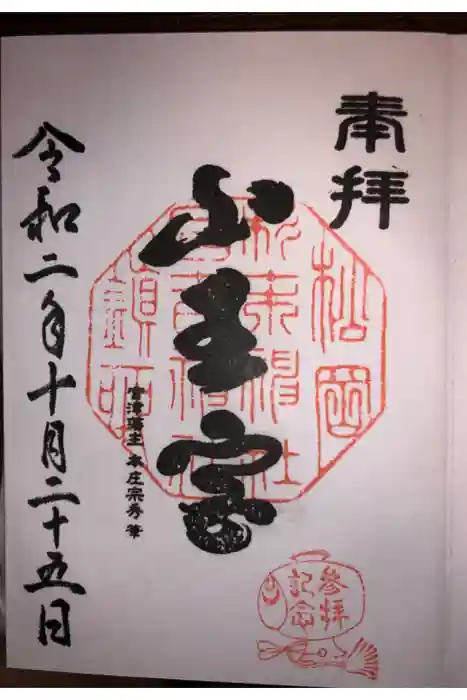 奉拝
山王宮
宮津藩主 本庄宗秀 筆
令和二年十月二十五日
參拝
記念